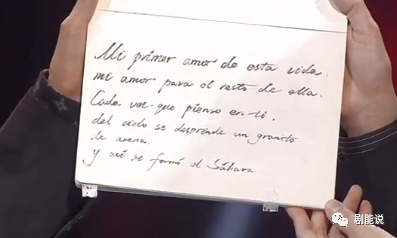 Mi primer amor de esta vida.
mi amor para el resto de ella.
Cada vez que pienso en ti.
del cielo se desprende un granito
de arena.
y así se formó el Sáhara
剧能说